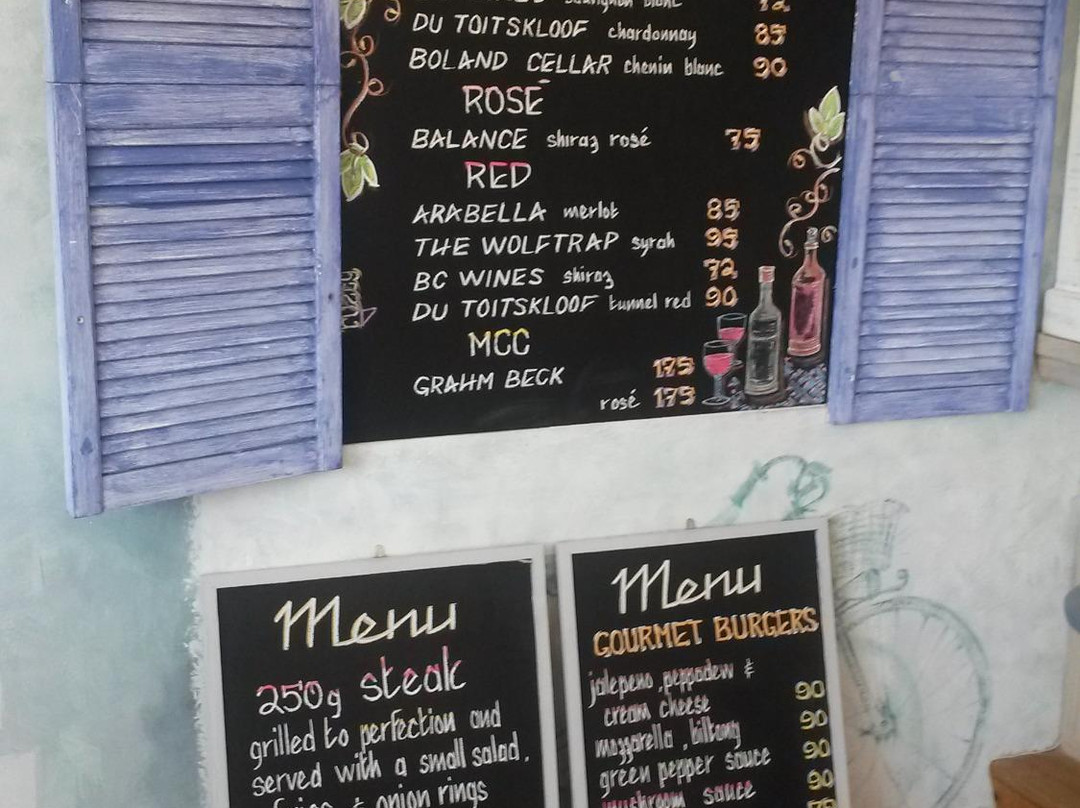 sauvignon blanc 72
DU TOITSKLOOF chardonnay 85
BOLAND CELLAR chenin blanc 90
ROSÉ
BALANCE shiraz rosé 75
RED
ARABELLA merlot 85
THE WOLFTRAP syrah 95
BC WINES shiraz 72
DU TOITSKLOOF tunnel red 90
MCC
GRAHM BECK 175
rosé 175
Menu
250g steak
grilled to perfection and
served with a small salad,
onion rings
Menu
GOURMET BURGERS
jalepeno, peppadew &
cream cheese 90
mozzarella, biltong 90
green pepper sauce 90
mushroom sauce 90